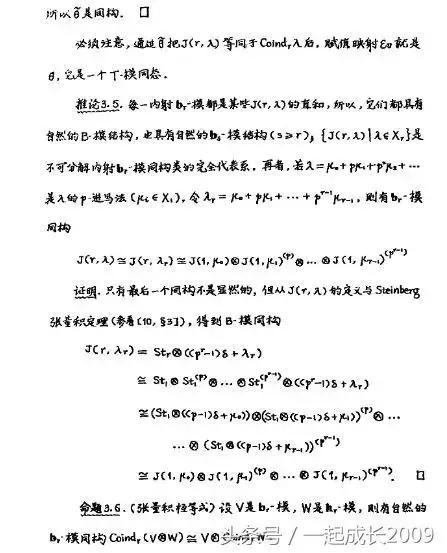 所以θ̃是同构. □
必须注意,通过θ̃把J(r,λ)等同于Coindᵣλ后,赋值映射ε₀就是
θ,它是一个T-模同态.
推论3.5. 每一内射bᵣ-模都是某些J(r,λ)的直和,所以,它们都具有
自然的B-模结构,也具有自然的bₛ-模结构(s≥r);{J(r,λ)|λ∈Xᵣ}是
不可分解内射bᵣ-模同构类的完全代表系.再者,若λ=μ₀+pμ₁+p²μ₂+…
是λ的p-进写法(μᵢ∈X₁),令λᵣ=μ₀+pμ₁+…+pʳ⁻¹μᵣ₋₁,则有bᵣ-模
同构
J(r,λ)≅J(r,λᵣ)≅J(1,μ₀)⊗J(1,μ₁)⁽ᵖ⁾⊗…⊗J(1,μᵣ₋₁)^(pʳ⁻¹)
证明.只有最后一个同构不是显然的,但从J(r,λ)的定义与Steinberg
张量积定理(参看[10,§3]),得到B-模同构
J(r,λᵣ)=Stᵣ⊗((pʳ-1)δ+λᵣ)
≅St₁⊗St₁⁽ᵖ⁾⊗…⊗St₁^(pʳ⁻¹)⊗((pʳ-1)δ+λᵣ)
≅(St₁⊗((p-1)δ+μ₀))⊗(St₁⊗((p-1)δ+μ₁))⁽ᵖ⁾⊗…
…⊗(St₁⊗((p-1)δ+μᵣ₋₁))^(pʳ⁻¹)
≅J(1,μ₀)⊗J(1,μ₁)⁽ᵖ⁾⊗…⊗J(1,μᵣ₋₁)^(pʳ⁻¹). □
命题3.6.(张量积恒等式)设V是bᵣ-模,W是hᵣ-模,则有自然的
bᵣ-模同构Coindᵣ(V⊗W)≅V⊗
头条号 / 一起成长2009